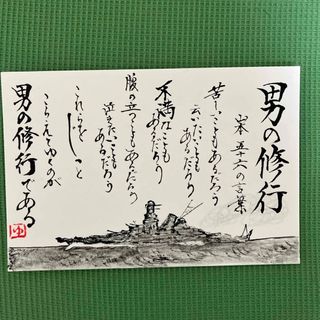 男の修行
山本五十六の言葉
苦しいこともあるだろう
云いたいことも
あるだろう
不満なことも
あるだろう
腹の立つことも
あるだろう
泣きたいことも
あるだろう
これらをじっと
こらえてゆくのが
男の修行である